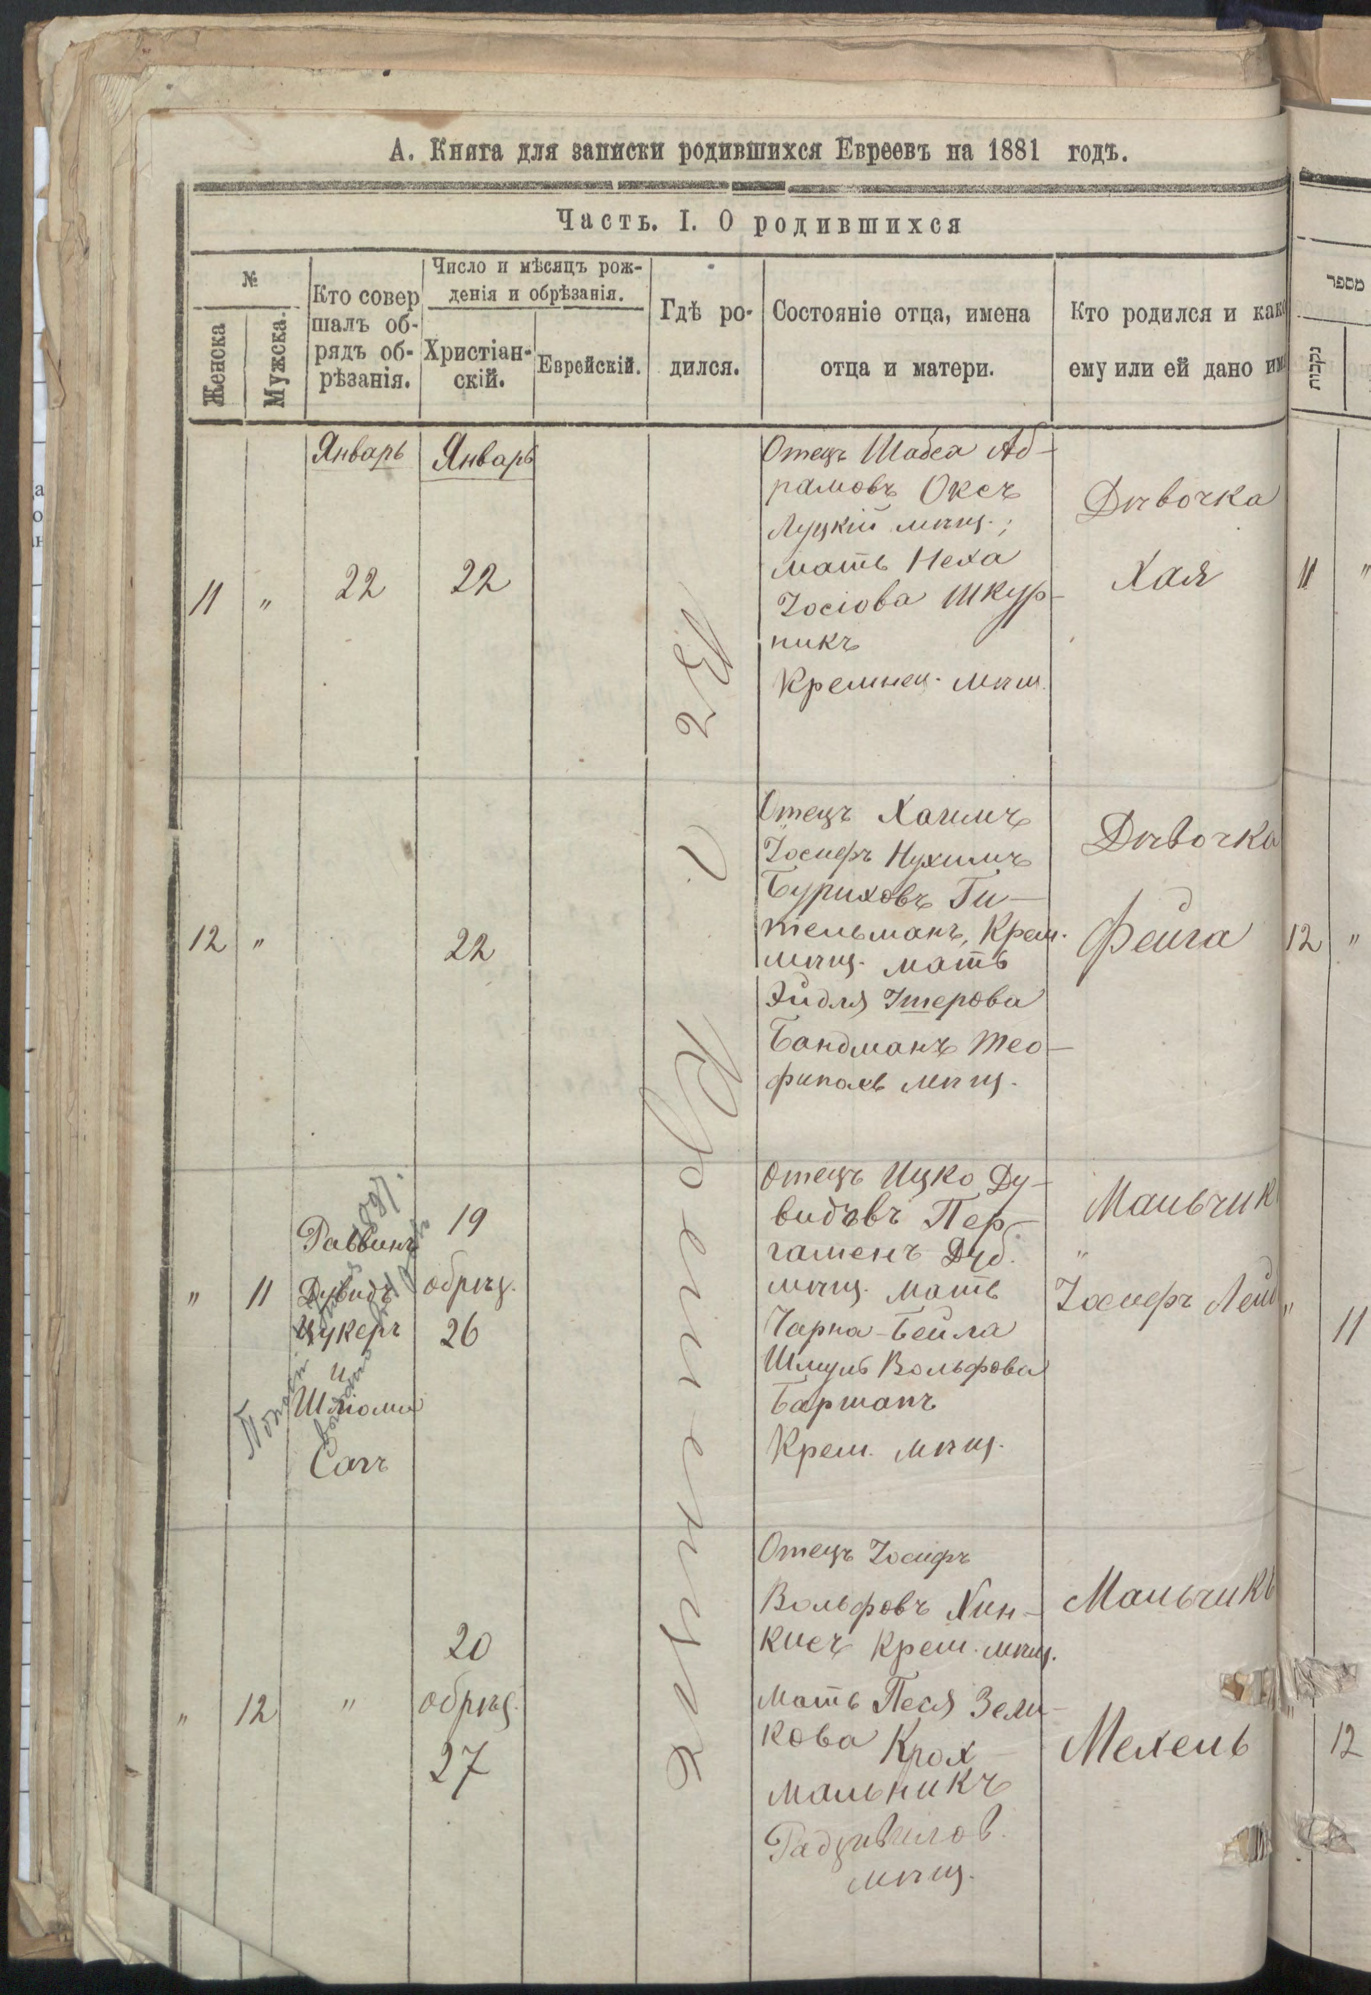 А. Книга для записки родившихся Евреевъ на 1881 годъ.
Часть. I. О родившихся
№
Женска
Мужска.
Кто совер
шалъ об-
рядъ об-
рѣзанія.
Число и мѣсяцъ рож-
денія и обрѣзанія.
Христіан-
скій.
Еврейскій.
Гдѣ ро-
дился.
Состояніе отца, имена
отца и матери.
Кто родился и како
ему или ей дано им
מספר
נקבות
Январь
Январь
11
"
22
22
Отецъ Шабса Аб-
рамовъ Оксъ
Луцкій мѣщ.;
мать Неха
Іосіова Шкур-
никъ
Кременец. мѣщ.
Дѣвочка
Хая
11
"
12
"
22
Отецъ Хаимъ
Іосифъ Нухимъ
Буриховъ Ги-
тельманъ, Крем.
мѣщ. мать
Эйдля Iтерова
Бандманъ Тео-
фиполь мѣщ.
Дѣвочка
Фейга
12
"
"
11
Раввинъ
Дувидъ
Цукеръ
и
Шліома
Сагъ
19
обрѣз.
26
Отецъ Ицко Ду-
видовъ Пер-
гаменъ Дуб.
мѣщ. мать
Чарна-Бейла
Шмуль Вольфова
Барманъ
Крем. мѣщ.
Мальчик
"
Іосифъ Лейб
"
11
"
12
"
20
обрѣз.
27
Отецъ Іосифъ
Вольфовъ Хин-
кисъ Крем. мѣщ.
мать Песя Зели-
кова Крох-
мальникъ
Радзивилов.
мѣщ.
Мальчикъ
Мехель
"
12
Кременецъ